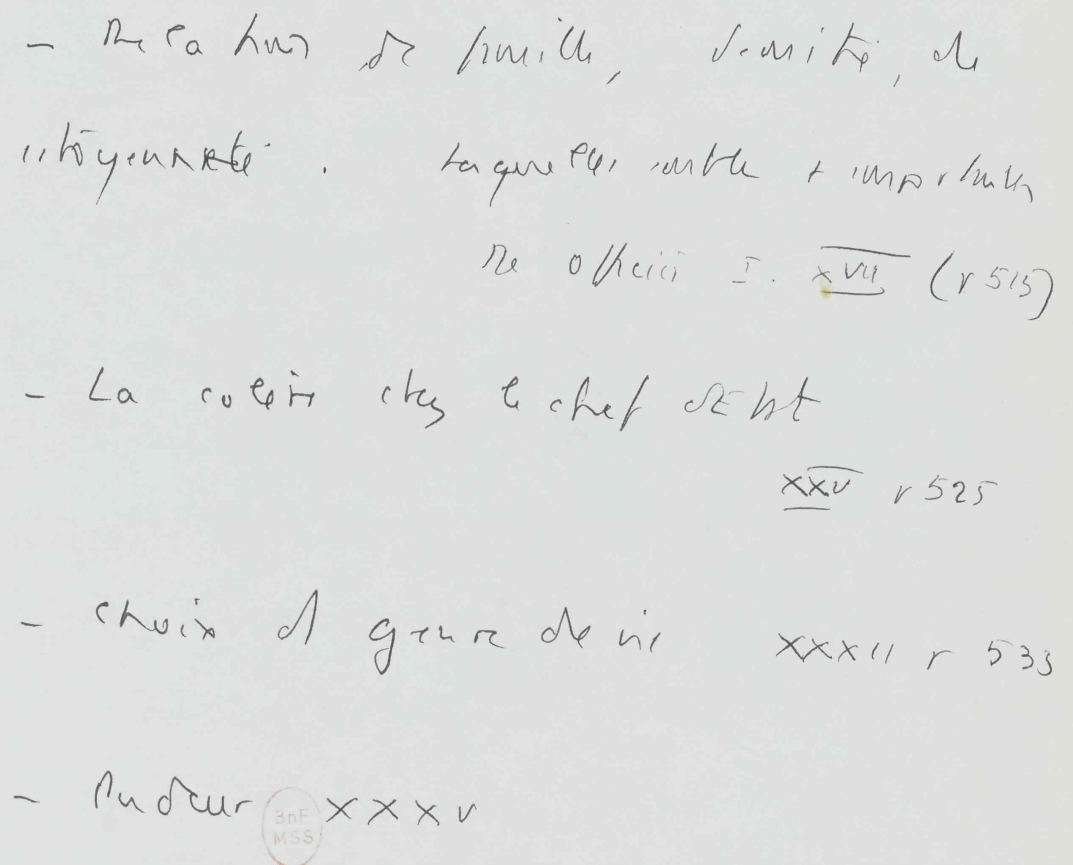 - Relations de famille, d'amitié, de
citoyenneté. Laquelle semble + importante
De officiis I. XVII (r 515)
- La colère chez le chef d'Etat
XXV r 525
- Choix d genre de vie XXXII r 533
- Pudeur XXXV
BnF
MSS